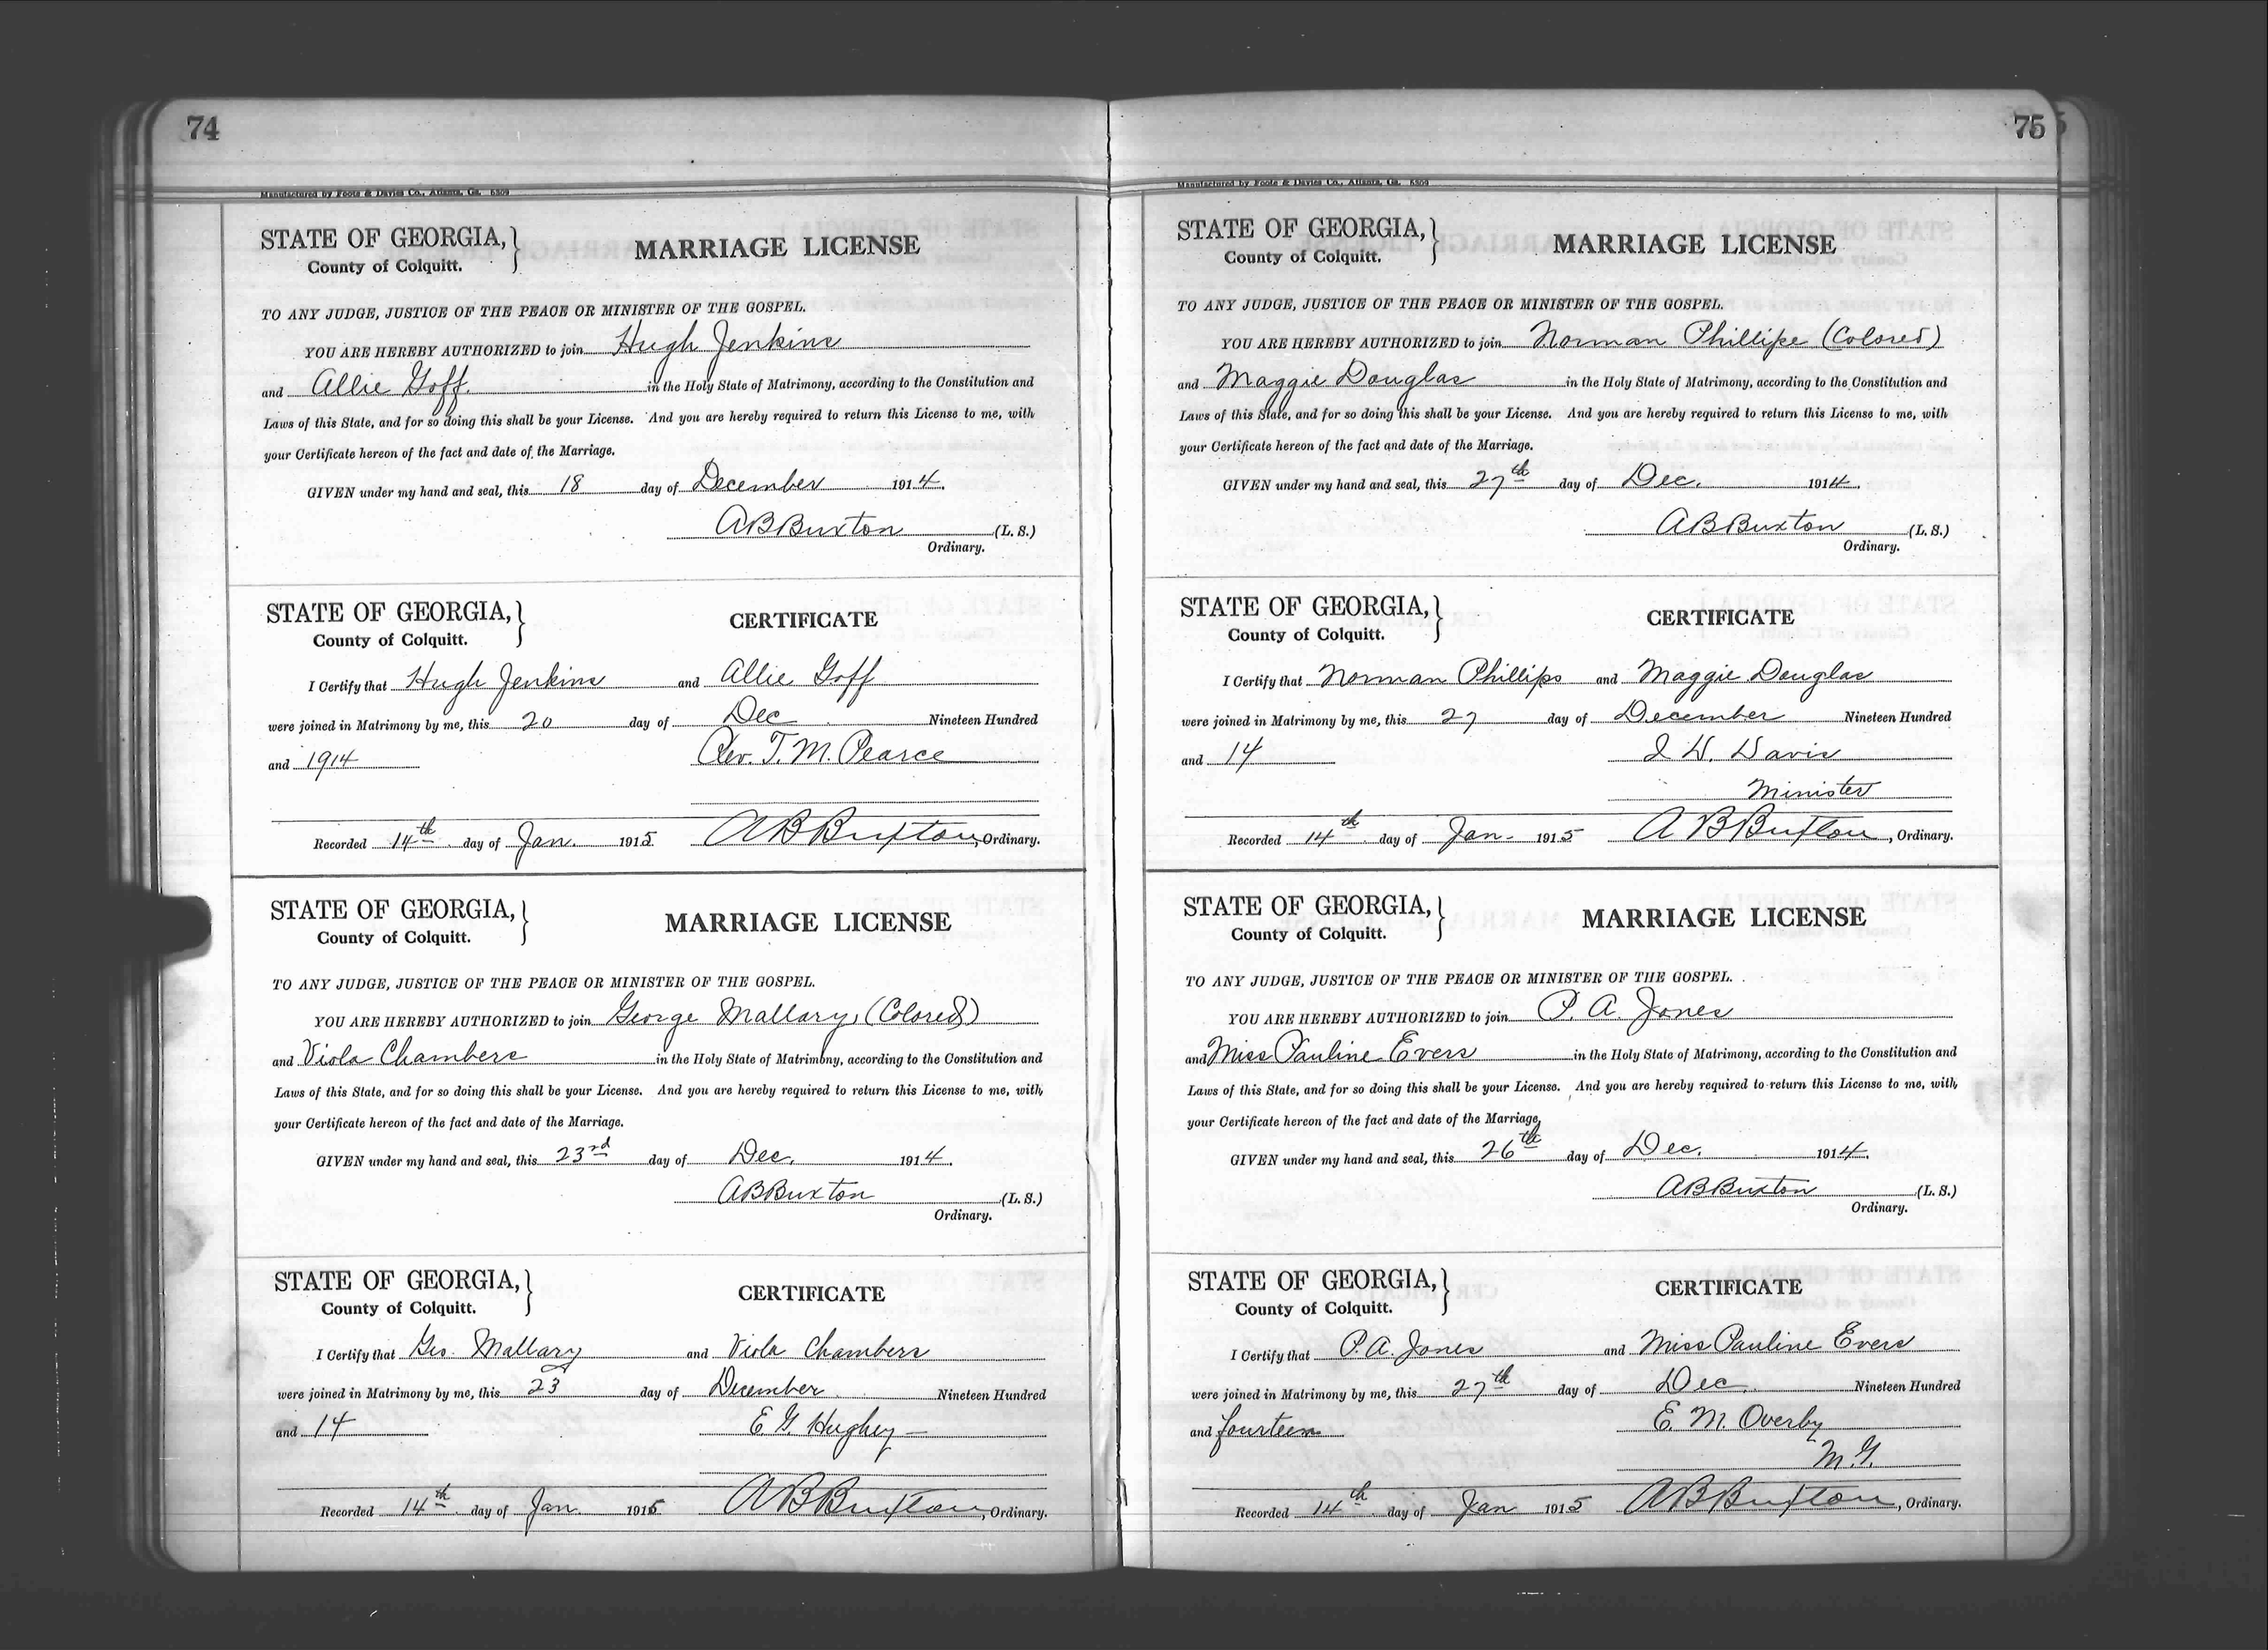 74
Manufactured by Foote & Davies Co., Atlanta, Ga. 5309
STATE OF GEORGIA,
County of Colquitt.
MARRIAGE LICENSE
TO ANY JUDGE, JUSTICE OF THE PEACE OR MINISTER OF THE GOSPEL.
YOU ARE HEREBY AUTHORIZED to join Hugh Jenkins
and Allie Goff in the Holy State of Matrimony, according to the Constitution and
Laws of this State, and for so doing this shall be your License. And you are hereby required to return this License to me, with
your Certificate hereon of the fact and date of the Marriage.
GIVEN under my hand and seal, this 18 day of December 1914.
A B Buxton (L. S.)
Ordinary.
STATE OF GEORGIA,
County of Colquitt.
CERTIFICATE
I Certify that Hugh Jenkins and Allie Goff
were joined in Matrimony by me, this 20 day of Dec Nineteen Hundred
and 1914 Rev. T. M. Pearce
Recorded 14th day of Jan. 1915 A B Buxton, Ordinary.
STATE OF GEORGIA,
County of Colquitt.
MARRIAGE LICENSE
TO ANY JUDGE, JUSTICE OF THE PEACE OR MINISTER OF THE GOSPEL.
YOU ARE HEREBY AUTHORIZED to join George Mallary, (Colored)
and Viola Chambers in the Holy State of Matrimony, according to the Constitution and
Laws of this State, and for so doing this shall be your License. And you are hereby required to return this License to me, with
your Certificate hereon of the fact and date of the Marriage.
GIVEN under my hand and seal, this 23rd day of Dec. 1914.
A B Buxton (L. S.)
Ordinary.
STATE OF GEORGIA,
County of Colquitt.
CERTIFICATE
I Certify that Geo. Mallary and Viola Chambers
were joined in Matrimony by me, this 23 day of December Nineteen Hundred
and 14 E G. Hughey
Recorded 14th day of Jan. 1915 A B Buxton, Ordinary.
75
Manufactured by Foote & Davies Co., Atlanta, Ga. 5309
STATE OF GEORGIA,
County of Colquitt.
MARRIAGE LICENSE
TO ANY JUDGE, JUSTICE OF THE PEACE OR MINISTER OF THE GOSPEL.
YOU ARE HEREBY AUTHORIZED to join Norman Phillips (Colored)
and Maggie Douglas in the Holy State of Matrimony, according to the Constitution and
Laws of this State, and for so doing this shall be your License. And you are hereby required to return this License to me, with
your Certificate hereon of the fact and date of the Marriage.
GIVEN under my hand and seal, this 27th day of Dec. 1914.
A B Buxton (L. S.)
Ordinary.
STATE OF GEORGIA,
County of Colquitt.
CERTIFICATE
I Certify that Norman Phillips and Maggie Douglas
were joined in Matrimony by me, this 27 day of December Nineteen Hundred
and 14 I H. Davis
Minister
Recorded 14th day of Jan. 1915 A B Buxton, Ordinary.
STATE OF GEORGIA,
County of Colquitt.
MARRIAGE LICENSE
TO ANY JUDGE, JUSTICE OF THE PEACE OR MINISTER OF THE GOSPEL.
YOU ARE HEREBY AUTHORIZED to join P. A. Jones
and Miss Pauline Evers in the Holy State of Matrimony, according to the Constitution and
Laws of this State, and for so doing this shall be your License. And you are hereby required to return this License to me, with
your Certificate hereon of the fact and date of the Marriage.
GIVEN under my hand and seal, this 26th day of Dec. 1914.
A B Buxton (L. S.)
Ordinary.
STATE OF GEORGIA,
County of Colquitt.
CERTIFICATE
I Certify that P. A. Jones and Miss Pauline Evers
were joined in Matrimony by me, this 27th day of Dec. Nineteen Hundred
and fourteen E. M. Overby
M. G.
Recorded 14th day of Jan 1915 A B Buxton, Ordinary.